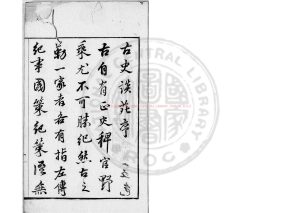 古史談苑序
古自有正史稗官野
乘尤不可勝紀然古之
勒一家者各有指左傳
紀事國策紀策語無